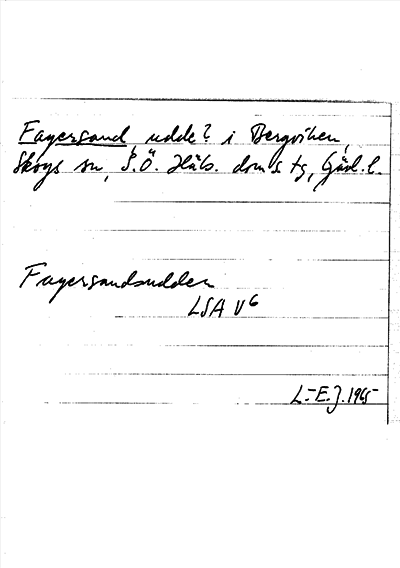 Fagersand, udde? i Bergviken,
Skogs sn, S.Ö. Häls. doms tg, Gävl. l.
Fagersandsudden
LSA V6
L-E.J. 1965